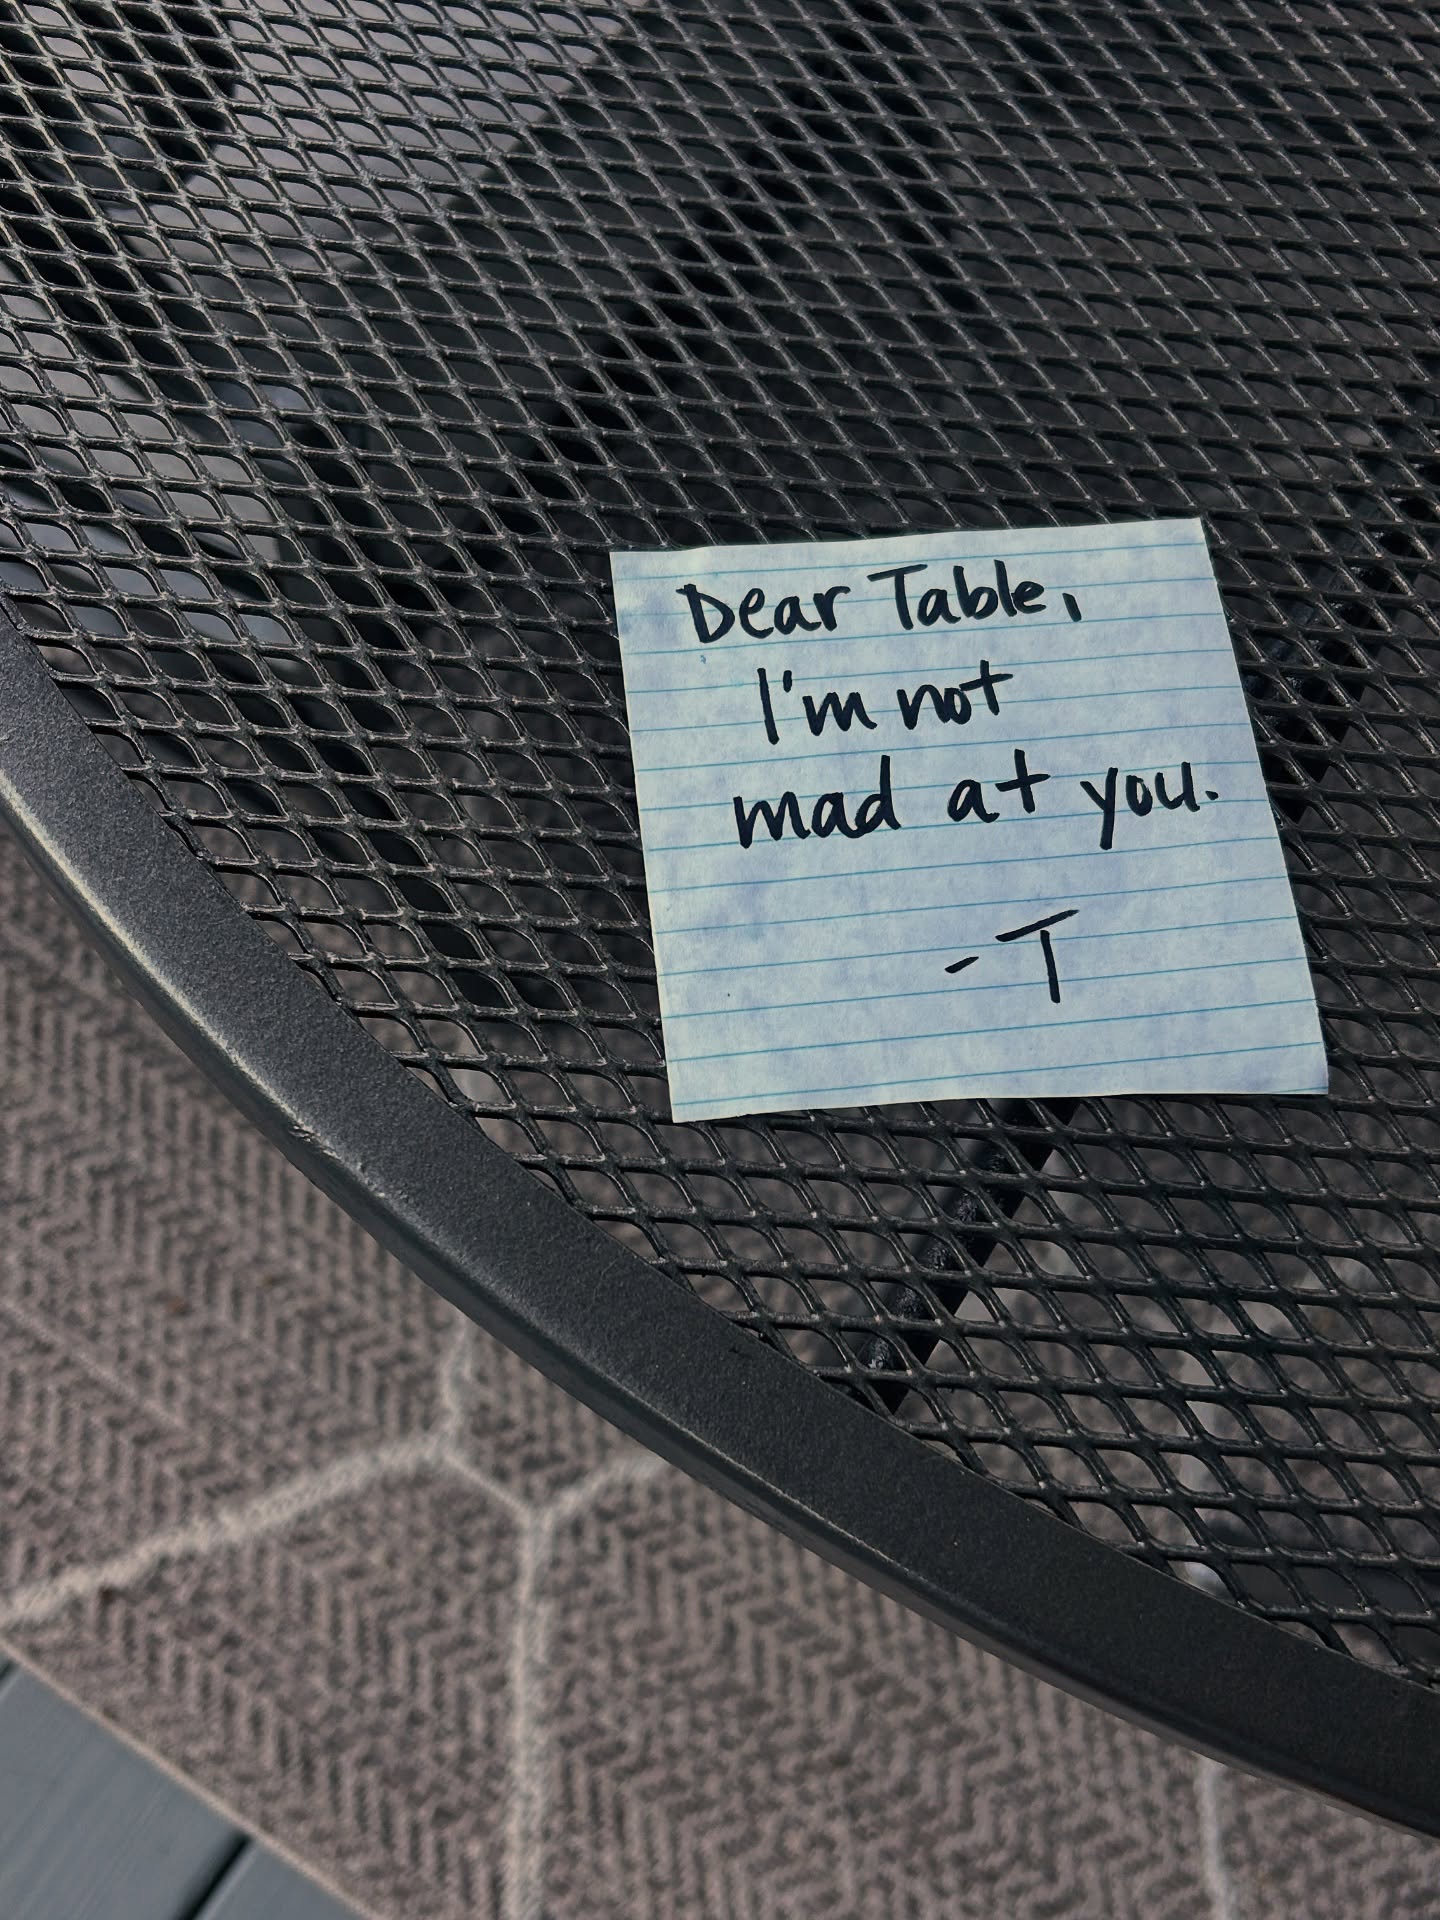 Dear Table,
I'm not
mad at you.
-T